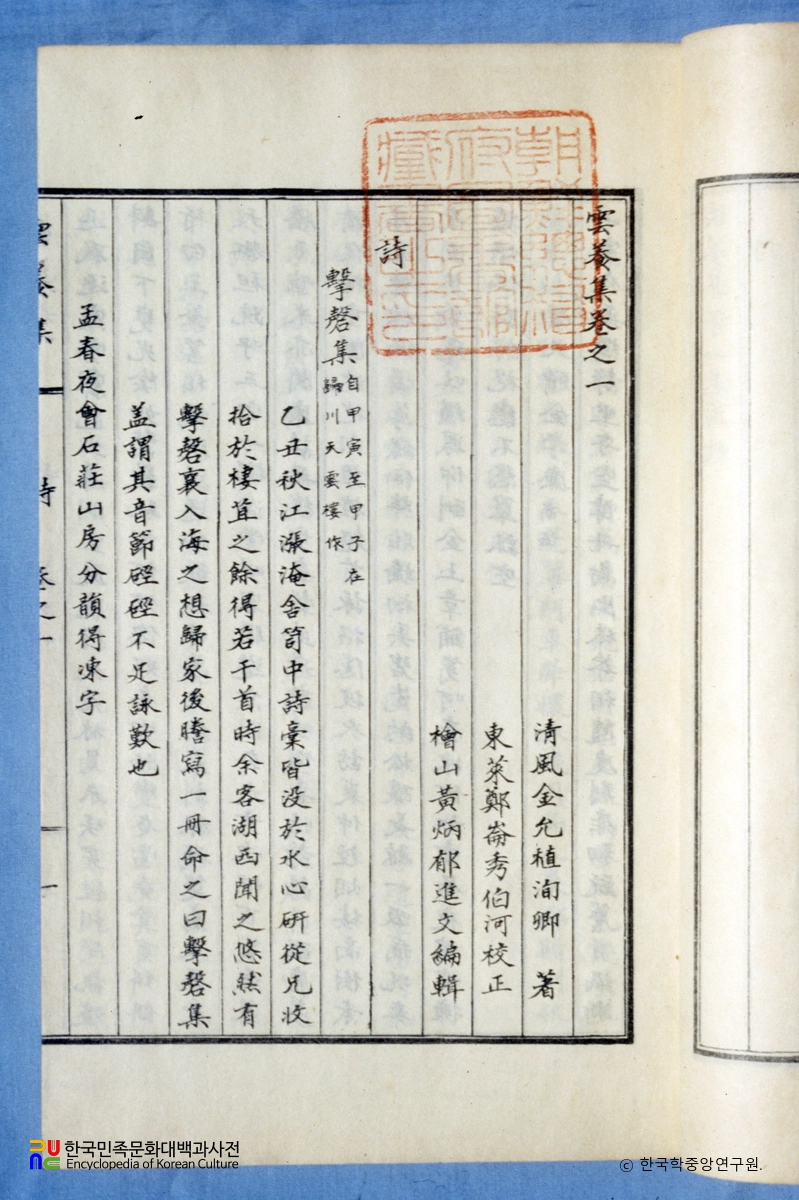 雲養集卷之一
清風金允植洵卿 著
東萊鄭崙秀伯河校正
檜山黃炳郁進文編輯
詩
擊磬集自甲寅至甲子在
歸川天雲樓作
乙丑秋江漲淹舍笥中詩稾皆沒於水心研從兄收
拾於棲苴之餘得若干首時余客湖西聞之悠然有
擊磬襄入海之想歸家後謄寫一冊命之曰擊磬集
盖謂其音節硜硜不足詠歎也
孟春夜會石莊山房分韻得凍字
雲養集
詩 卷之一
一
한국민족문화대백과사전
Encyclopedia of Korean Culture
© 한국학중앙연구원.